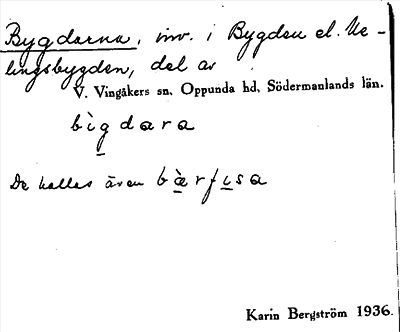 Bygdarna, inv. i Bygden el. Ue-
lingsbygden, del av
V. Vingåkers sn, Oppunda hd, Södermanlands län.
bìgdara
De kallas även bàrfisa
Karin Bergström 1936.